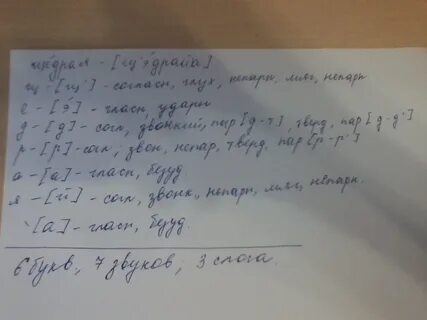 щедрая - [щ'э́драйа]
щ - [щ'] - согласн, глух, непарн, мягк, непарн
е - [э́] - гласн, ударн
д - [д] - согл, звонкий, пар [д-т], тверд, пар [д-д']
р - [р] - согл, звон, непар, тверд, пар [р-р']
а - [а] - гласн, безуд
я - [й] - согл, звонк, непарн, мягк, непарн.
[а] - гласн, безуд.
6 букв, 7 звуков, 3 слога.